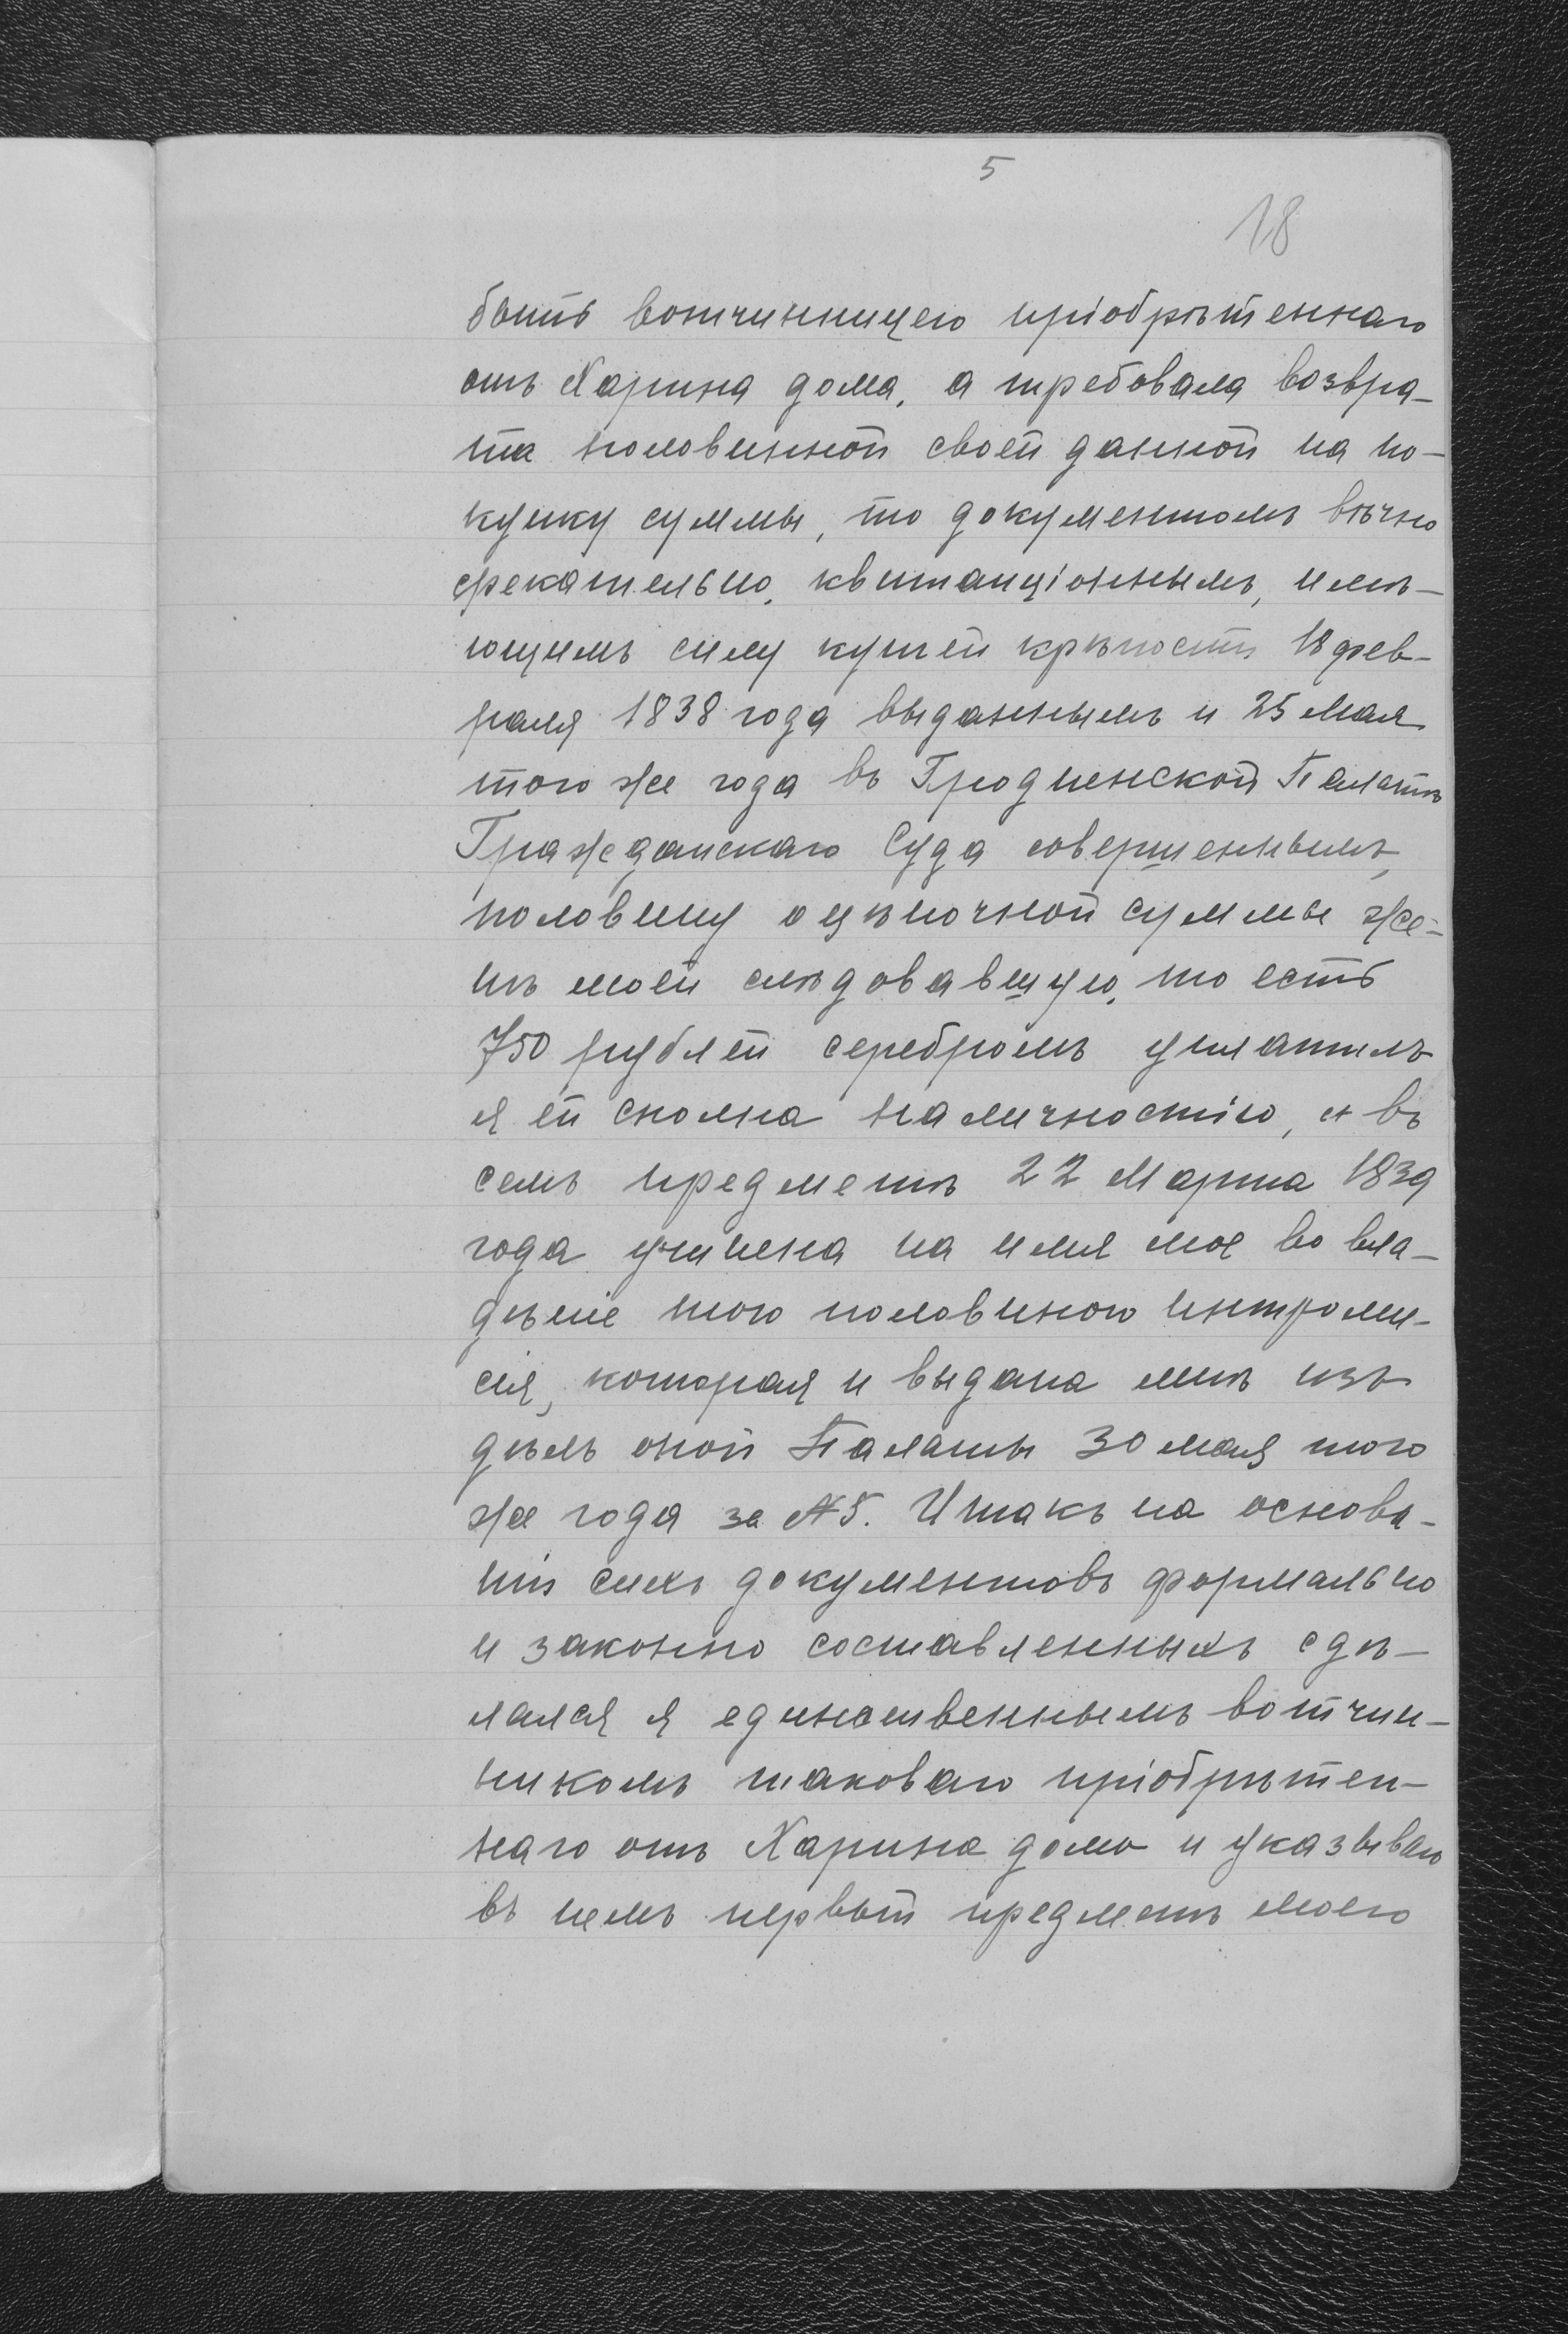 5
18
быть вотчинницею пріобрѣтеннаго
отъ Харина дома, а требовала возвра-
та половинной своей данной на по-
купку суммы, то документомъ вѣчно
срекательно, квитанціоннымъ, имѣ-
ющимъ силу купчей крѣпости 18 фев-
раля 1838 года выданнымъ и 25 мая
того же года въ Гродненской Палатѣ
Гражданскаго Суда совершеннымъ,
половину оцѣночной суммы же-
нѣ моей слѣдовавшую, то есть
750 рублей серебромъ уплатилъ
я ей сполна наличностію, и въ
семъ предметѣ 22 Марта 1839
года учинена на имя мое во вла-
дѣніе тою половиною интроми-
сія, которая и выдана мнѣ изъ
дѣлъ оной Палаты 30 мая того
же года за №5. Итакъ на основа-
ніи сихъ документовъ формально
и законно составленныхъ сдѣ-
лался я единственнымъ вотчин-
никомъ таковаго пріобрѣтен-
наго отъ Харина дома и указываю
въ немъ первый предметъ моего